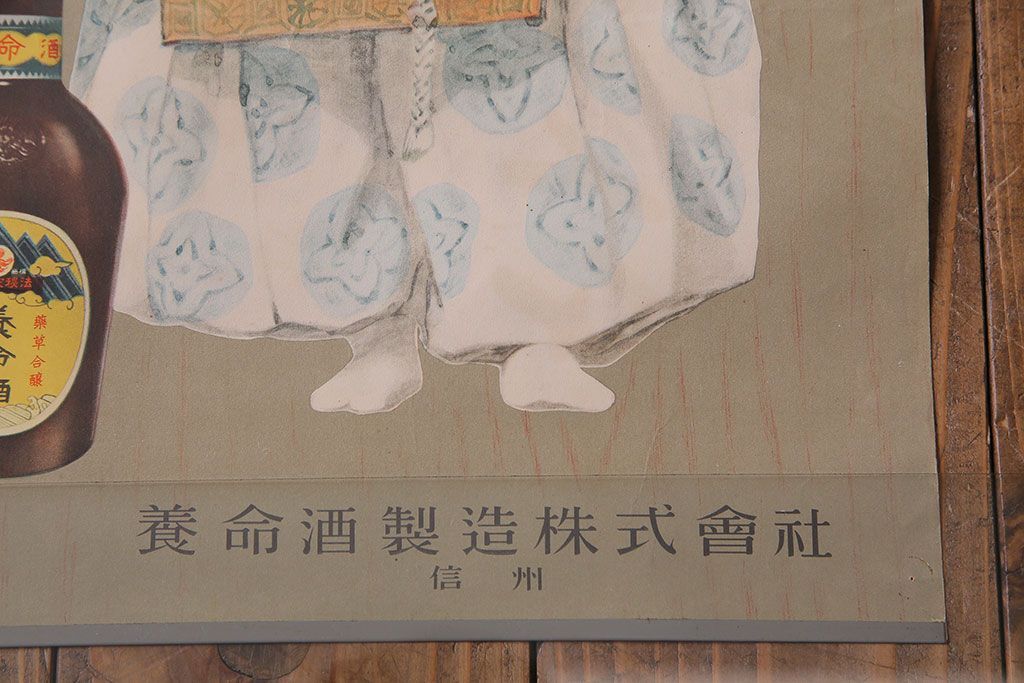 命酒
法
養命酒
藥草合釀
養命酒製造株式會社
信州